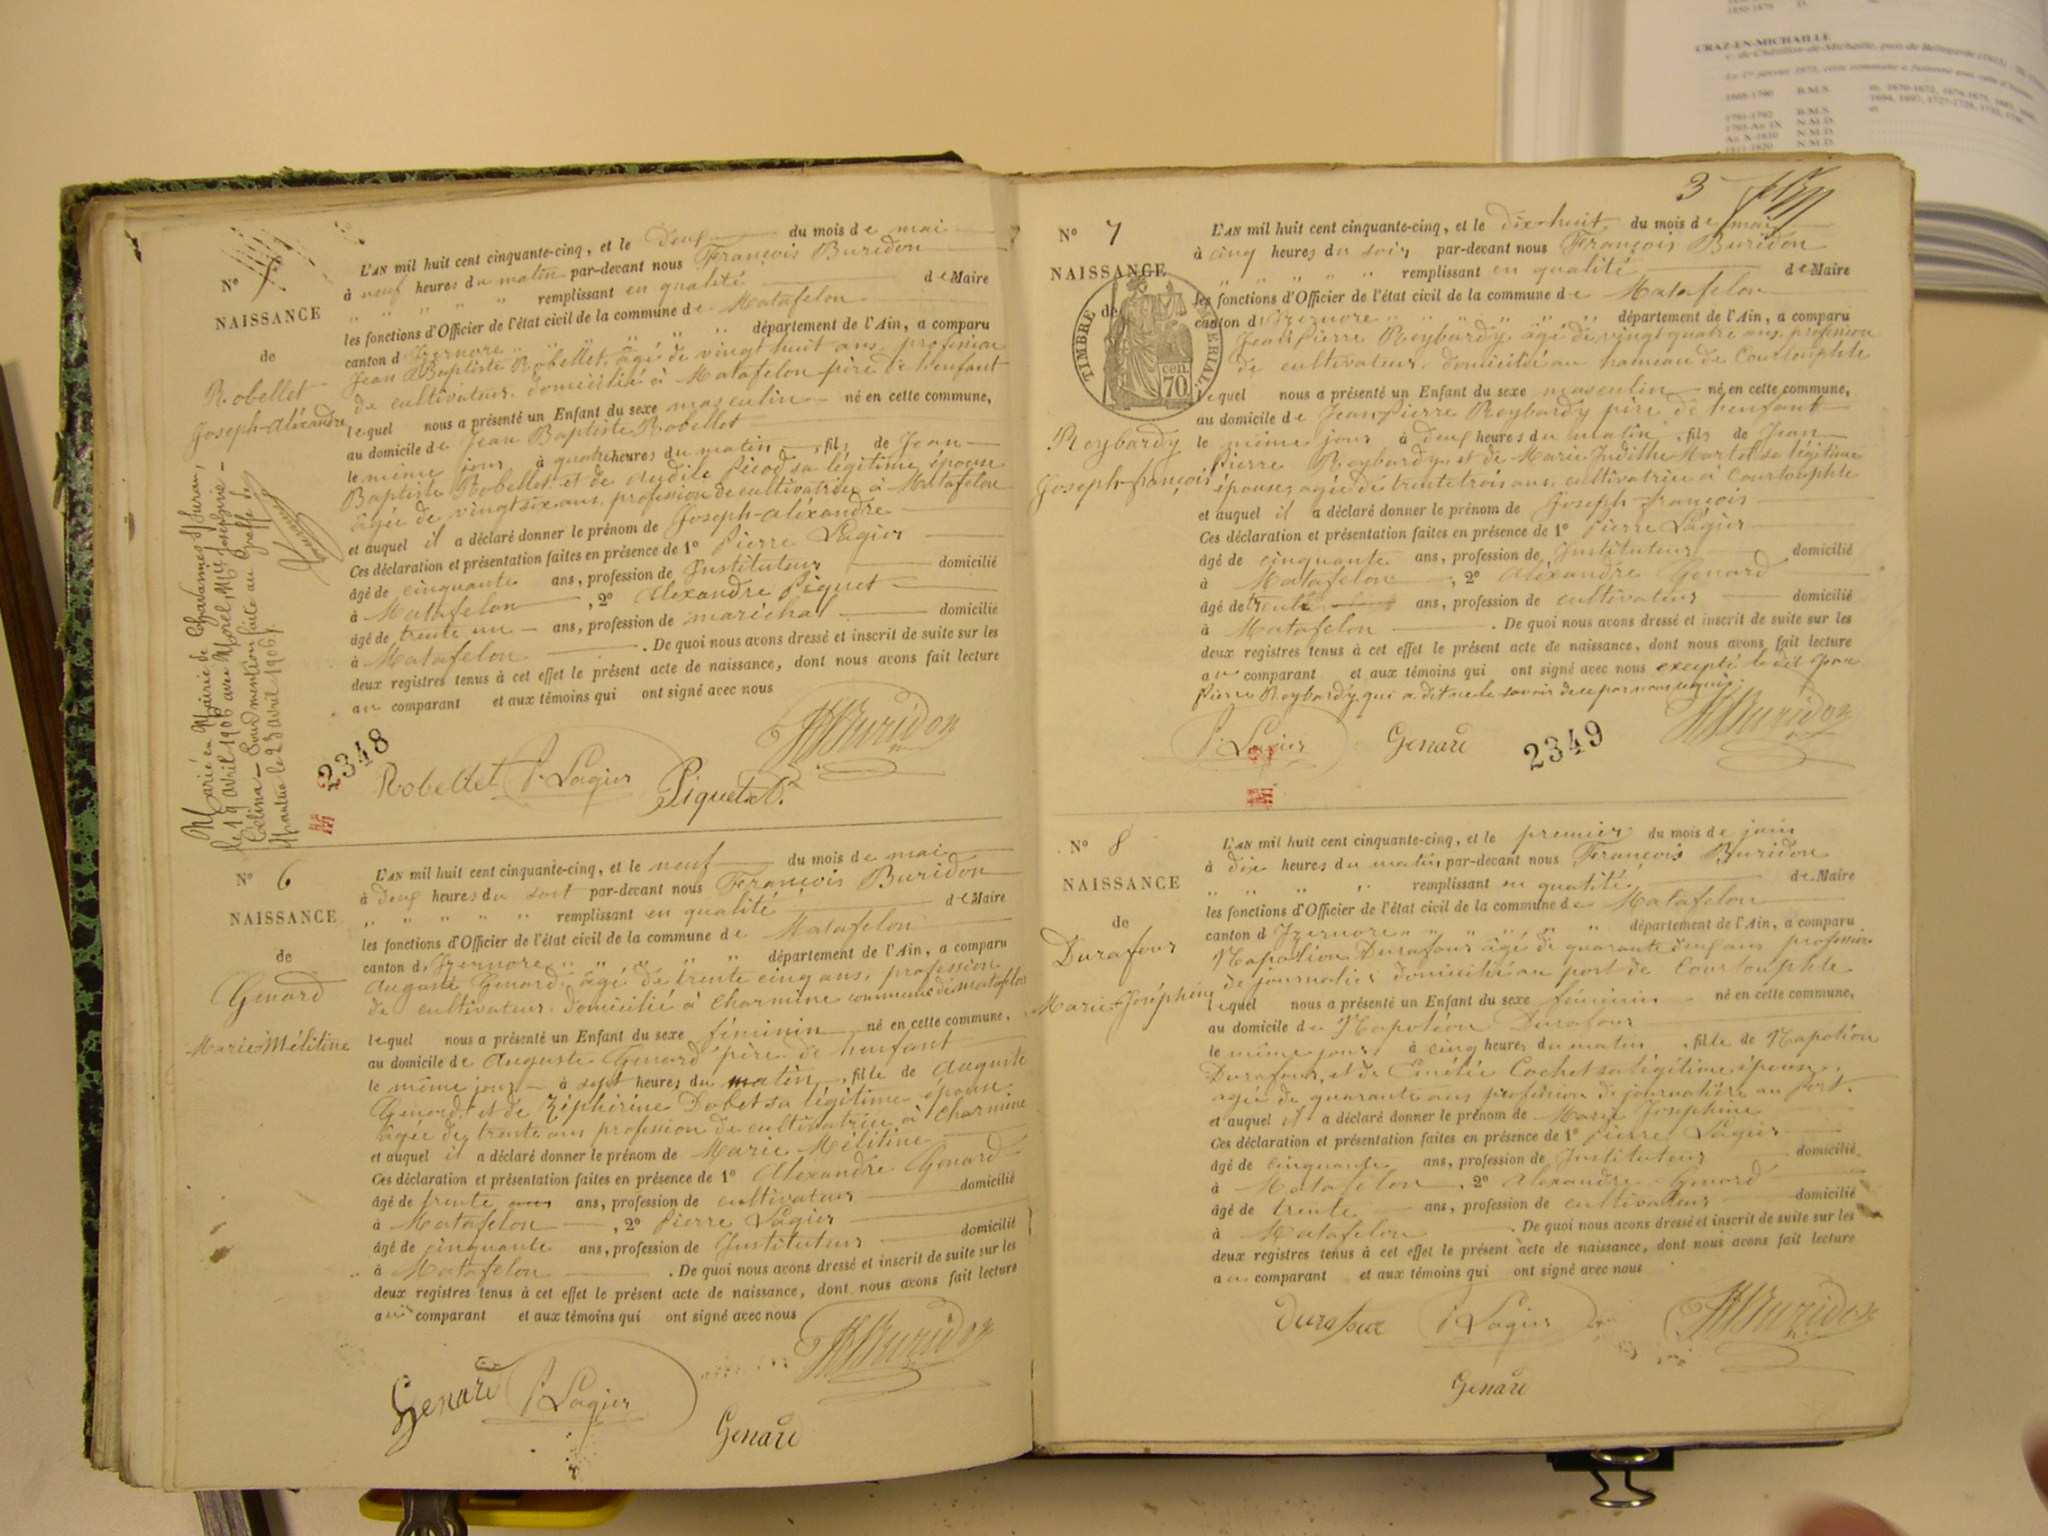 L'AN mil huit cent cinquante-cinq, et le deux du mois de mai
à neuf heures du matin par-devant nous François Buridon
remplissant en qualité de Maire
les fonctions d'Officier de l'état civil de la commune de Matafelon
canton d'Izernore département de l'Ain, a comparu
Jean Baptiste Robellet, âgé de vingt huit ans, profession
de cultivateur, domicilié à Matafelon père de l'enfant
lequel nous a présenté un Enfant du sexe masculin né en cette commune,
au domicile de Jean Baptiste Robellet
le même jour à quatre heures du matin, fils de Jean
Baptiste Robellet et de Picod sa légitime épouse
âgée de vingt six ans, profession de cultivatrice à Matafelon
et auquel il a déclaré donner le prénom de Joseph-Aléxandre
Ces déclaration et présentation faites en présence de 1° Pierre Lagier
âgé de cinquante ans, profession de Instituteur domicilié
à Matafelon, 2° Alexandre Piquet
âgé de trente un ans, profession de maréchal domicilié
à Matafelon. De quoi nous avons dressé et inscrit de suite sur les
deux registres tenus à cet effet le présent acte de naissance, dont nous avons fait lecture
au comparant et aux témoins qui ont signé avec nous
Buridon
Robellet P. Lagier Piquet A.
2348
N°
NAISSANCE
de
Robellet
Joseph-Aléxandre
Marié en Mairie de Chavannes s/ Suran,
le 19 avril 1906 avec Morel, Mie Josephine
Célina — Dont mention faite au Greffe de
Nantua le 23 avril 1906
N° 6
NAISSANCE
de
Genard
Marie Mélitine
L'AN mil huit cent cinquante-cinq, et le neuf du mois de mai
à deux heures du soir par-devant nous François Buridon
remplissant en qualité de Maire
les fonctions d'Officier de l'état civil de la commune de Matafelon
canton d'Izernore département de l'Ain, a comparu
Auguste Genard, âgé de trente cinq ans, profession
de cultivateur, domicilié à Charmine commune de Matafelon
lequel nous a présenté un Enfant du sexe féminin né en cette commune,
au domicile de Auguste Genard père de l'enfant
le même jour à sept heures du matin, fille de Auguste
Genard et de Zéphirine Dobet sa légitime épouse
âgée de trente ans profession de cultivatrice à Charmine
et auquel il a déclaré donner le prénom de Marie Mélitine
Ces déclaration et présentation faites en présence de 1° Alexandre Genard
âgé de trente ans, profession de cultivateur domicilié
à Matafelon, 2° Pierre Lagier
âgé de cinquante ans, profession de Instituteur domicilié
à Matafelon. De quoi nous avons dressé et inscrit de suite sur les
deux registres tenus à cet effet le présent acte de naissance, dont nous avons fait lecture
au comparant et aux témoins qui ont signé avec nous
Buridon
Genard P. Lagier
Genard
3
N° 7
NAISSANCE
de
TIMBRE IMPÉRIAL
70 cen.
Roybardy
Joseph-françois
L'AN mil huit cent cinquante-cinq, et le dix-huit du mois de mai
à cinq heures du soir par-devant nous François Buridon
remplissant en qualité de Maire
les fonctions d'Officier de l'état civil de la commune de Matafelon
canton d'Izernore département de l'Ain, a comparu
Jean Pierre Roybardy, âgé de vingt quatre ans, profession
de cultivateur, domicilié au hameau de Courtouphle
lequel nous a présenté un Enfant du sexe masculin né en cette commune,
au domicile de Jean Pierre Roybardy père de l'enfant
le même jour à deux heures du matin, fils de Jean
Pierre Roybardy, et de Marie Judithe Marlot sa légitime
épouse, agée de trente trois ans, cultivatrice à Courtouphle
et auquel il a déclaré donner le prénom de Joseph-françois
Ces déclaration et présentation faites en présence de 1° Pierre Lagier
âgé de cinquante ans, profession de Instituteur domicilié
à Matafelon, 2° Aléxandre Genard
âgé de trente ans, profession de cultivateur domicilié
à Matafelon. De quoi nous avons dressé et inscrit de suite sur les
deux registres tenus à cet effet le présent acte de naissance, dont nous avons fait lecture
au comparant et aux témoins qui ont signé avec nous excepté le dit Jean
Pierre Roybardy, qui a dit ne le savoir de ce par nous requis
P. Lagier Genard Buridon
2349
N° 8
NAISSANCE
de
Durafour
Marie-Joséphine
L'AN mil huit cent cinquante-cinq, et le premier du mois de juin
à dix heures du matin par-devant nous François Buridon
remplissant en qualité de Maire
les fonctions d'Officier de l'état civil de la commune de Matafelon
canton d'Izernore département de l'Ain, a comparu
Napoléon Durafour âgé de quarante deux ans profession
de journalier domicilié au port de Courtouphle
lequel nous a présenté un Enfant du sexe féminin né en cette commune,
au domicile de Napoléon Durafour
le même jour, à cinq heures du matin, fille de Napoléon
Durafour, et de Emélie Cochet sa légitime épouse,
agée de quarante ans profession de journalière au port.
et auquel il a déclaré donner le prénom de Marie Joséphine
Ces déclaration et présentation faites en présence de 1° Pierre Lagier
âgé de cinquante ans, profession de Instituteur domicilié
à Matafelon, 2° Alexandre Genard
âgé de trente ans, profession de cultivateur domicilié
à Matafelon. De quoi nous avons dressé et inscrit de suite sur les
deux registres tenus à cet effet le présent acte de naissance, dont nous avons fait lecture
au comparant et aux témoins qui ont signé avec nous
Durafour P. Lagier Buridon
Genard
1850-1879 D.
CRAZ-EN-MICHAILLE
1791-1792 B.M.S.
An X-1810 N.M.D.
1811-1820 N.M.D.